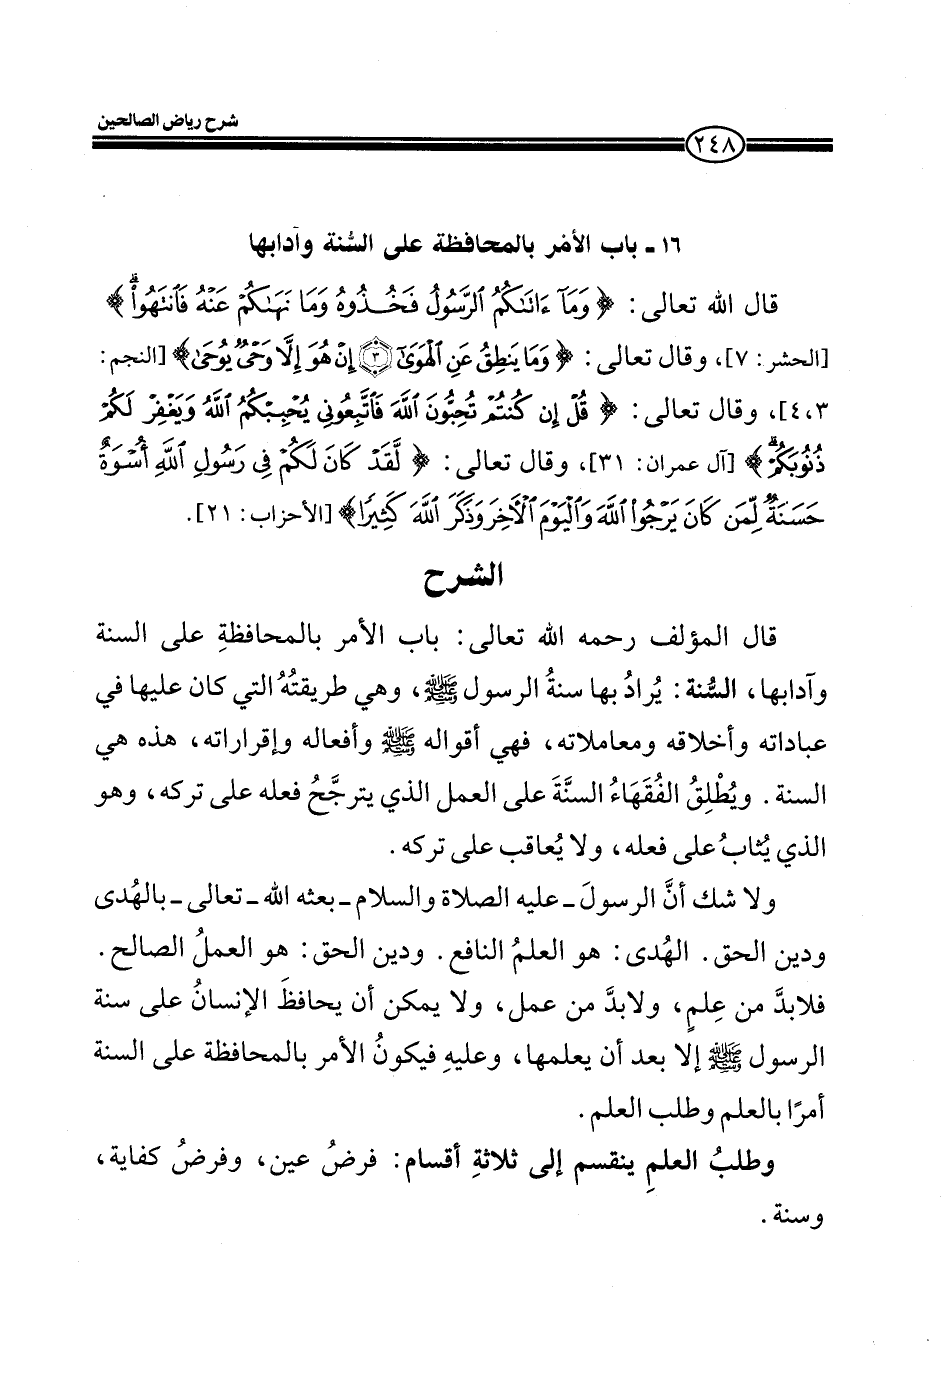 شرح رياض الصالحين
٢٤٨
١٦ ـ باب الأمْر بالمحافظة على السُّنة وآدابها
قال الله تعالى: ﴿ وَمَآ ءَاتَىٰكُمُ ٱلرَّسُولُ فَخُـذُوهُ وَمَا نَهَىٰكُمْ عَنْهُ فَٱنتَهُواْۚ ﴾
[الحشر: ٧]، وقال تعالى: ﴿ وَمَا يَنطِقُ عَنِ ٱلْهَوَىٰٓ ﴿٣﴾ إِنْ هُوَ إِلَّا وَحْىٌ يُوحَىٰ﴾ [النجم:
٣،٤]، وقال تعالى: ﴿ قُلْ إِن كُنتُمْ تُحِبُّونَ ٱللَّهَ فَٱتَّبِعُونِي يُحْبِبْكُمُ ٱللَّهُ وَيَغْفِرْ لَكُمْ
ذُنُوبَكُمْۗ ﴾ [آل عمران: ٣١]، وقال تعالى: ﴿ لَّقَدْ كَانَ لَكُمْ فِى رَسُولِ ٱللَّهِ أُسْوَةٌ
حَسَنَةٌ لِّمَن كَانَ يَرْجُواْ ٱللَّهَ وَٱلْيَوْمَ ٱلْأَخِرَ وَذَكَرَ ٱللَّهَ كَثِيرًا﴾ [الأحزاب: ٢١].
الشرح
قال المؤلف رحمه الله تعالى: باب الأمر بالمحافظةِ على السنة
وآدابها، السُّنة: يُرادُ بها سنةُ الرسول ﷺ، وهي طريقتُهُ التي كان عليها في
عباداته وأخلاقه ومعاملاته، فهي أقواله ﷺ وأفعاله وإقراراته، هذه هي
السنة. ويُطْلِقُ الفُقَهَاءُ السنَّةَ على العمل الذي يترجَّحُ فعله على تركه، وهو
الذي يُثابُ على فعله، ولا يُعاقب على تركه.
ولا شك أنَّ الرسولَ ـ عليه الصلاة والسلام ـ بعثه الله ـ تعالى ـ بالهُدى
ودين الحق. الهُدى: هو العلمُ النافع. ودين الحق: هو العملُ الصالح.
فلابدَّ من عِلمٍ، ولابدَّ من عمل، ولا يمكن أن يحافظَ الإنسانُ على سنة
الرسول ﷺ إلا بعد أن يعلمها، وعليهِ فيكونُ الأمر بالمحافظة على السنة
أمرًا بالعلم وطلب العلم.
وطلبُ العلمِ ينقسم إلى ثلاثةِ أقسام: فرضُ عين، وفرضُ كفاية،
وسنة.